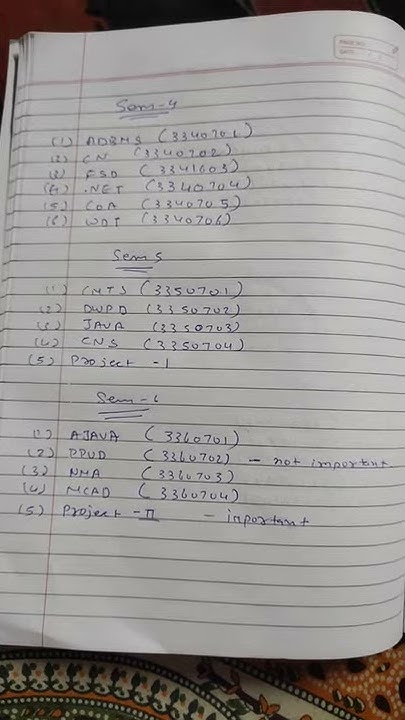 PAGE NO.
DATE
Sem-4
(1) ADBMS (3340701)
(2) CN (3340702)
(3) FSD (3341603)
(4) .NET (3340704)
(5) COA (3340705)
(6) WDT (3340706)
Sem 5
(1) CMTS (3350701)
(2) DWPD (3350702)
(3) JAVA (3350703)
(4) CNS (3350704)
(5) Project -I
Sem-6
(1) AJAVA (3360701)
(2) PPUD (3360702) - not important
(3) NMA (3360703)
(4) MCAD (3360704)
(5) Project -II - inportant